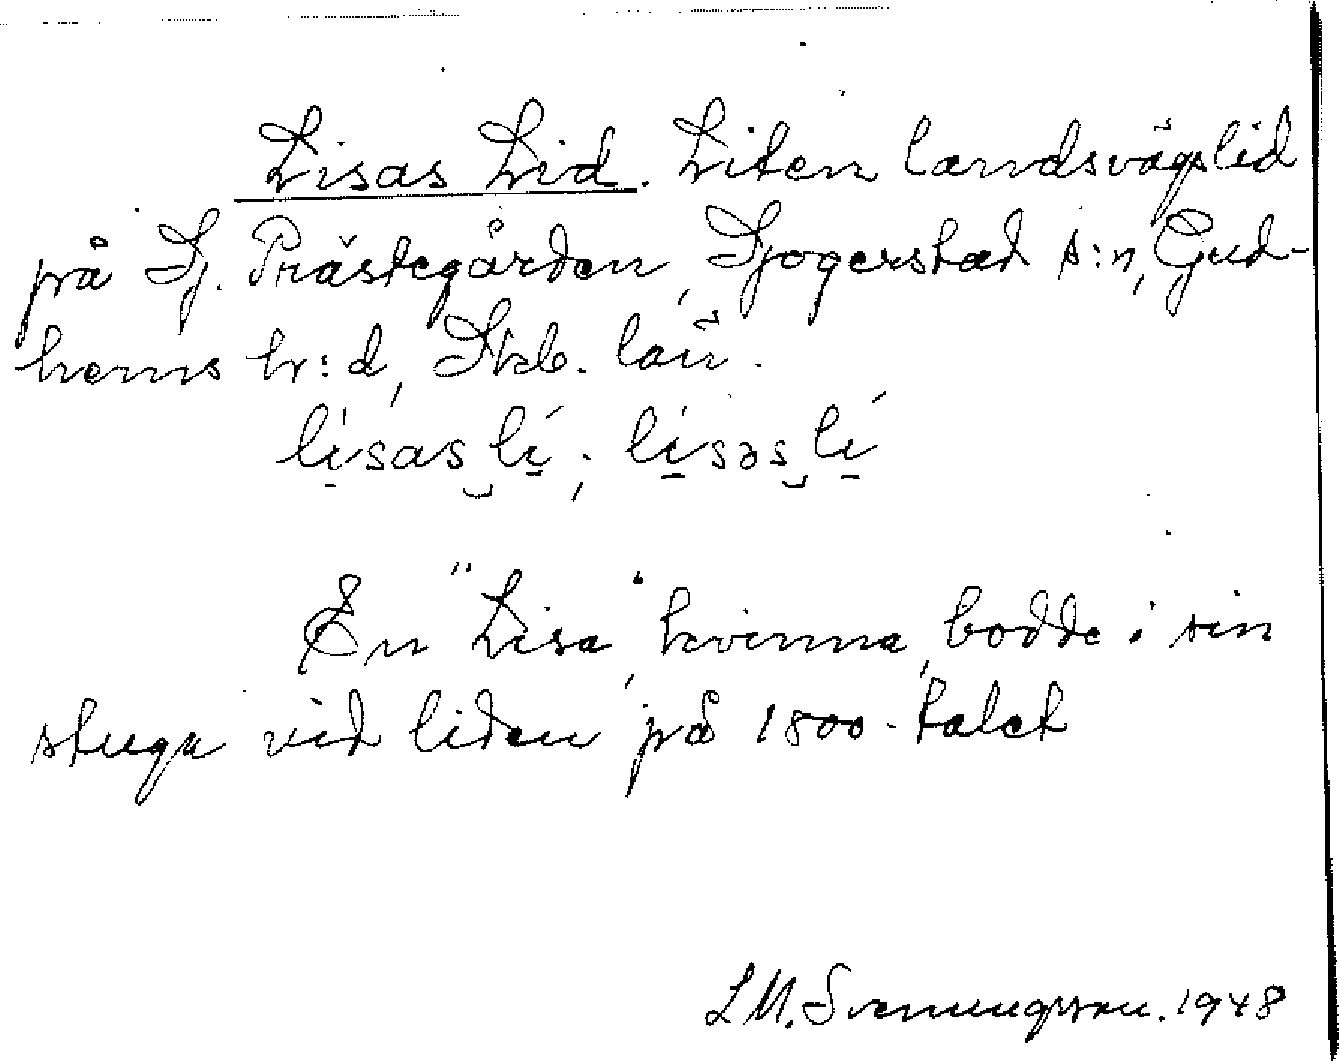 Lisas Lid. Liten landsvägslid
på Sj. Prästegården, Sjogerstad s:n, Gud-
hems hr:d, Skb. län.
lísas lí; lísəs lí
En "Lisa", kvinna, bodde i sin
stuga vid liden på 1800-talet
L M. Svenungsson. 1948